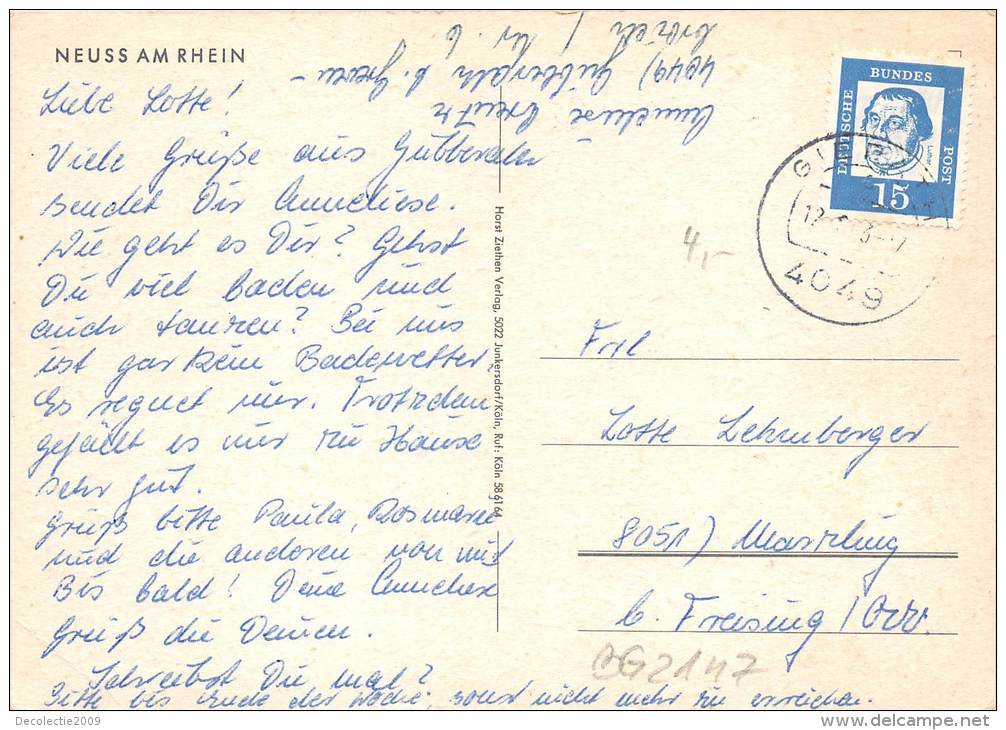 NEUSS AM RHEIN
Liebe Lotte!
Viele Grüße aus Gubberath
sendet Dir Anneliese.
Wie geht es Dir? Gehst
Du viel baden und
auch tanzen? Bei uns
ist gar kein Badewetter,
Es regnet nur. Trotzdem
gefällt es mir zu Hause
sehr gut.
Grüß bitte Paula, Rosmarie
und die anderen von mir
Bis bald! Deine Anneliese
Grüß die Deinen.
Schreibst Du mal?
Bitte bis Ende der Woche, sonst nicht mehr zu erreichen.
Anneliese Creutz
4049) Gubberath b. Greven-
broich / Nr. 6
Horst Ziethen Verlag, 5022 Junkersdorf/Köln, Ruf: Köln 586164
DEUTSCHE
BUNDES
POST
Luther
15
4049
4,-
Frl.
Lotte Lehrnberger
8051) Marzling
b. Freising / Obb.
Decolectie2009
www.delcampe.net